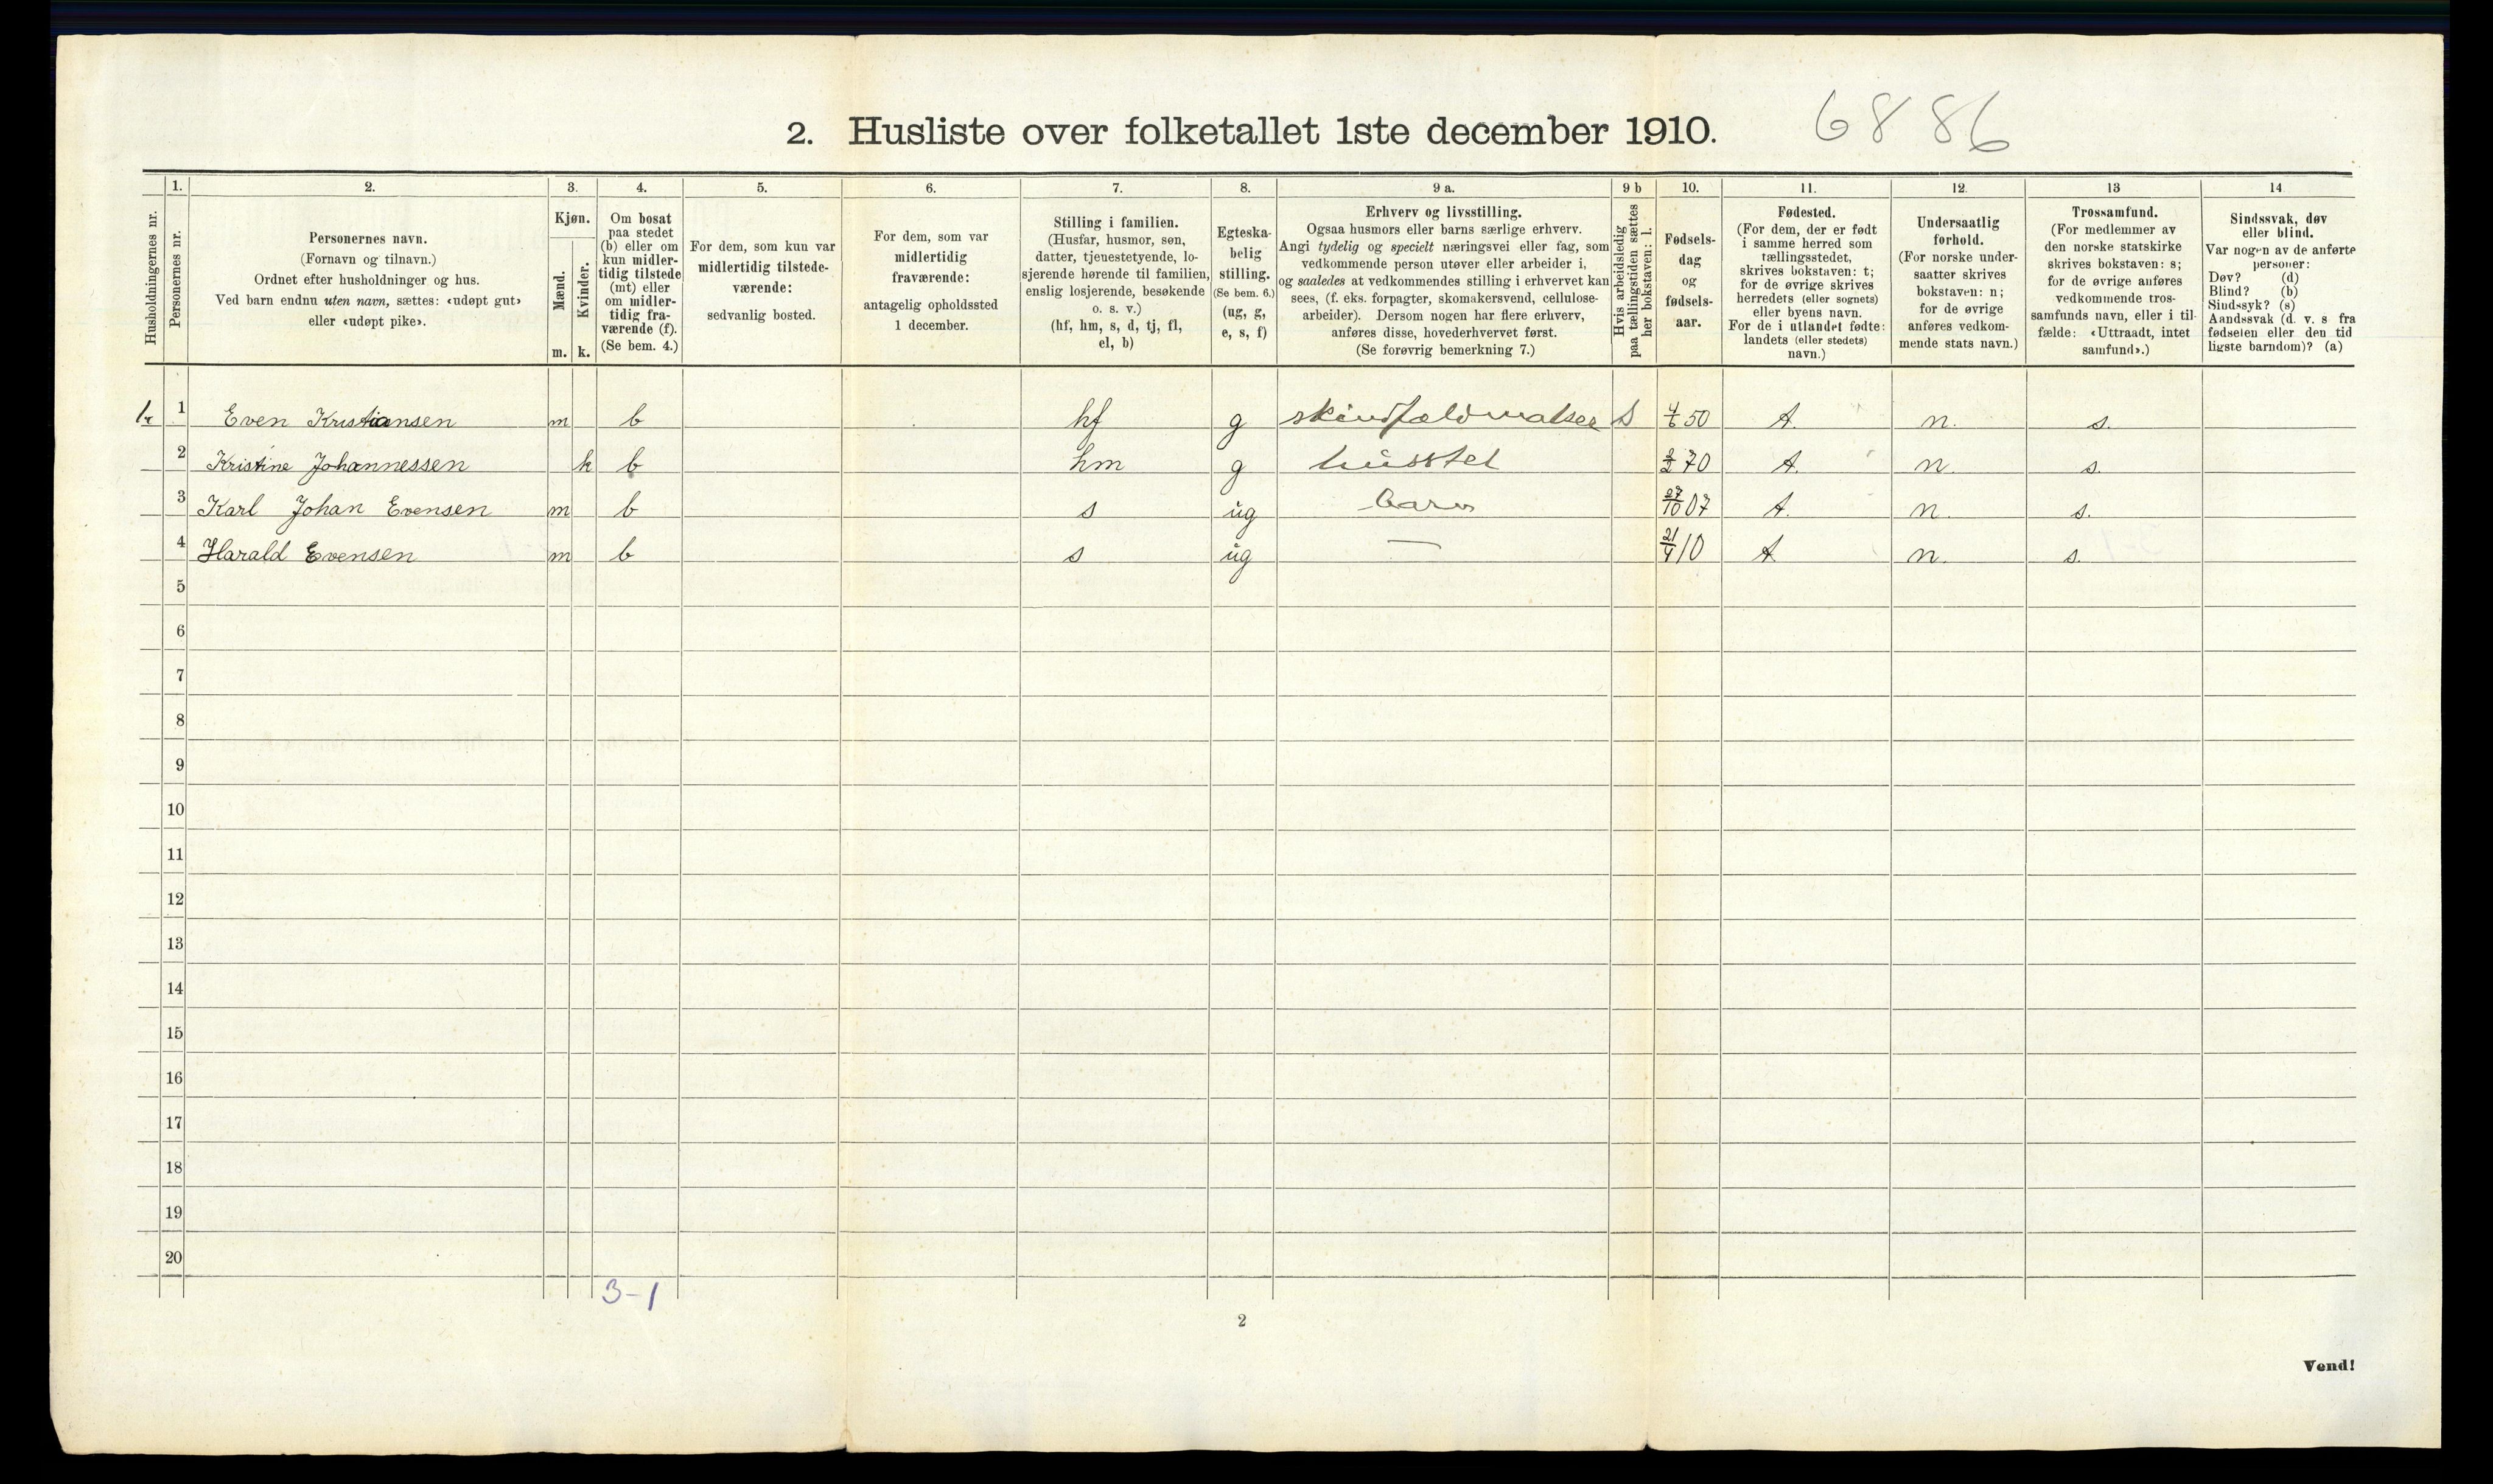 2. Husliste over folketallet 1ste december 1910. 6886
1. 2. 3. 4. 5. 6. 7. 8. 9 a. 9 b 10. 11. 12. 13 14
Husholdningernes nr.
Personernes nr.
Personernes navn.
(Fornavn og tilnavn.)
Ordnet efter husholdninger og hus.
Ved barn endnu uten navn, sættes: «udøpt gut»
eller «udøpt pike».
Kjøn.
Mænd.
m.
Kvinder.
k.
Om bosat
paa stedet
(b) eller om
kun midler-
tidig tilstede
(mt) eller
om midler-
tidig fra-
værende (f).
(Se bem. 4.)
For dem, som kun var
midlertidig tilstede-
værende:
sedvanlig bosted.
For dem, som var
midlertidig
fraværende:
antagelig opholdssted
1 december.
Stilling i familien.
(Husfar, husmor, søn,
datter, tjenestetyende, lo-
sjerende hørende til familien,
enslig losjerende, besøkende
o. s. v.)
(hf, hm, s, d, tj, fl,
el, b)
Egteska-
belig
stilling.
(Se bem. 6.)
(ug, g,
e, s, f)
Erhverv og livsstilling.
Ogsaa husmors eller barns særlige erhverv.
Angi tydelig og specielt næringsvei eller fag, som
vedkommende person utøver eller arbeider i,
og saaledes at vedkommendes stilling i erhvervet kan
sees, (f. eks. forpagter, skomakersvend, cellulose-
arbeider). Dersom nogen har flere erhverv,
anføres disse, hovederhvervet først.
(Se forøvrig bemerkning 7.)
Hvis arbeidsledig
paa tællingstiden sættes
her bokstaven: l.
Fødsels-
dag
og
fødsels-
aar.
Fødested.
(For dem, der er født
i samme herred som
tællingsstedet,
skrives bokstaven: t;
for de øvrige skrives
herredets (eller sognets)
eller byens navn.
For de i utlandet fødte:
landets (eller stedets)
navn.)
Undersaatlig
forhold.
(For norske under-
saatter skrives
bokstaven: n;
for de øvrige
anføres vedkom-
mende stats navn.)
Trossamfund.
(For medlemmer av
den norske statskirke
skrives bokstaven: s;
for de øvrige anføres
vedkommende tros-
samfunds navn, eller i til-
fælde: «Uttraadt, intet
samfund».)
Sindssvak, døv
eller blind.
Var nogen av de anførte
personer:
Døv? (d)
Blind? (b)
Sindssyk? (s)
Aandssvak (d. v. s fra
fødselen eller den tid
ligste barndom)? (a)
1 Even Kristiansen m b hf g 4/6 50 t. n. s.
2 Kristine Johannessen k b hm g husstel 2/2 70 t. n. s.
3 Karl Johan Evensen m b s ug barn 27/10 07 t. n. s.
4 Harald Evensen m b s ug — 21/4 10 t. n. s.
5
6
7
8
9
10
11
12
13
14
15
16
17
18
19
20
3-1
2
Vend!